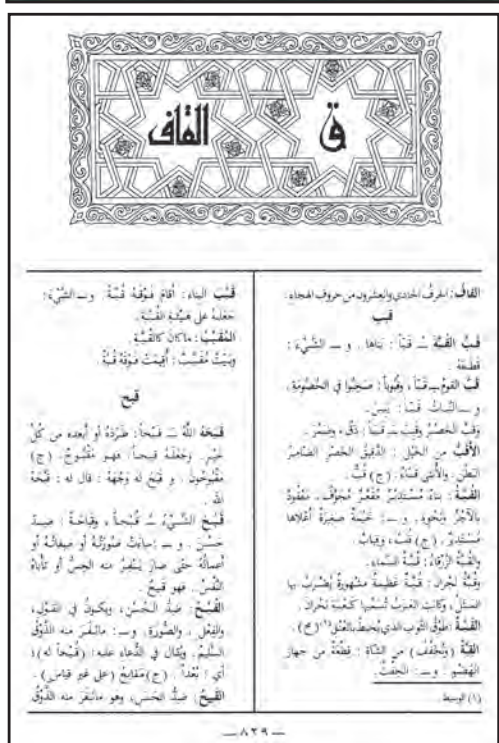 ق
القاف
القاف: الحرف الحادي والعشرون من حروف الهجاء.
قبب
قَبَّ القُبَّةَ ـُ قَبّاً : بَناها . و ــ الشَّيْءَ :
قَطَعَهُ .
قَبَّ القومُ ــِ قَبّاً ، وقُبُوباً : صَخِبُوا في الخُصُومَةِ .
و ــ النَّباتُ قَبّاً : يَبِسَ .
وقَبَّ الخَصْرُ وقَبِبَ ــَ قَبَباً : دَقَّ ، وضَمُرَ .
الأَقَبُّ من الخَيْلِ : الدَّقيقُ الخَصْرِ الضّامِرُ
البَطْنِ . والأُنثى قَبّاءُ . (ج) قُبٌّ .
القُبَّةُ : بناءٌ مُسْتَديرٌ مُقَعَّرٌ مُجَوَّفٌ ، مَعْقُودٌ
بالآجُرِّ ونَحْوِهِ . و ــ : خَيْمَةٌ صغيرَةٌ أعْلاها
مُسْتَديرٌ . (ج) قُبَبٌ ، وقِبابٌ .
والقُبَّةُ الزَّرْقاءُ : قُبَّةُ السَّماءِ .
وقُبَّةُ نَجْرانَ : قُبَّةٌ عَظيمَةٌ مشهورَةٌ يُضْرَبُ بها
المَثَلُ ، وكانَتِ العَرَبُ تُسَمِّيها كَعْبَةَ نَجْرانَ .
القَبَّةُ : طَوْقُ الثَّوبِ الذي يُحيطُ بالعُنُقِ (١) (مج) .
القِبَّةُ (وتُخَفَّفُ) من الشّاةِ : قِطْعَةٌ من جهازِ
الهَضْمِ . و ــ : الحِفْثُ .
(١) الوسيط .
قَبَّبَ البناءَ : أقامَ فَوْقَهُ قُبَّةً . و ــ الشَّيْءَ :
جَعَلَهُ على هَيْئَةِ القُبَّةِ .
المُقَبَّبُ : ما كانَ كالقُبَّةِ .
وبَيْتٌ مُقَبَّبٌ : أُقِيمَتْ فَوْقَهُ قُبَّةٌ
قبح
قَبَحَهُ اللهُ ــَ قَبْحاً : طَرَدَهُ أو أبعَدَه من كُلِّ
خَيْرٍ . وجَعَلَهُ قَبيحاً ، فهو مَقْبُوحٌ . (ج)
مَقْبُوحُونَ . و قَبَحَ له وَجْهَهُ : قال له : قَبَحَهُ
اللهُ .
قَبُحَ الشَّيْءُ ــُ قُبْحاً ، وقَباحَةً : ضِدُّ
حَسُنَ . و ــ : ساءَتْ صُورَتُهُ أو صِفاتُهُ أو
أعمالُهُ حتّى صارَ يَنْفِرُ منه الحِسُّ أو تأباهُ
النَّفْسُ . فهو قَبيحٌ .
القُبْحُ : ضِدُّ الحُسْنِ ، ويكونُ في القَوْلِ ،
والفِعْلِ ، والصُّورَةِ . و ــ : ما نَفَرَ منه الذَّوْقُ
السَّليمُ . ويُقالُ في الدُّعاءِ عليه : (قُبْحاً له)(
أي : بُعْداً . (ج) مَقابِحُ (على غيرِ قِياسٍ) .
القَبيحُ : ضِدُّ الحَسَنِ ، وهو ما نَفَرَ منه الذَّوْقُ
— ٨٢٩ —